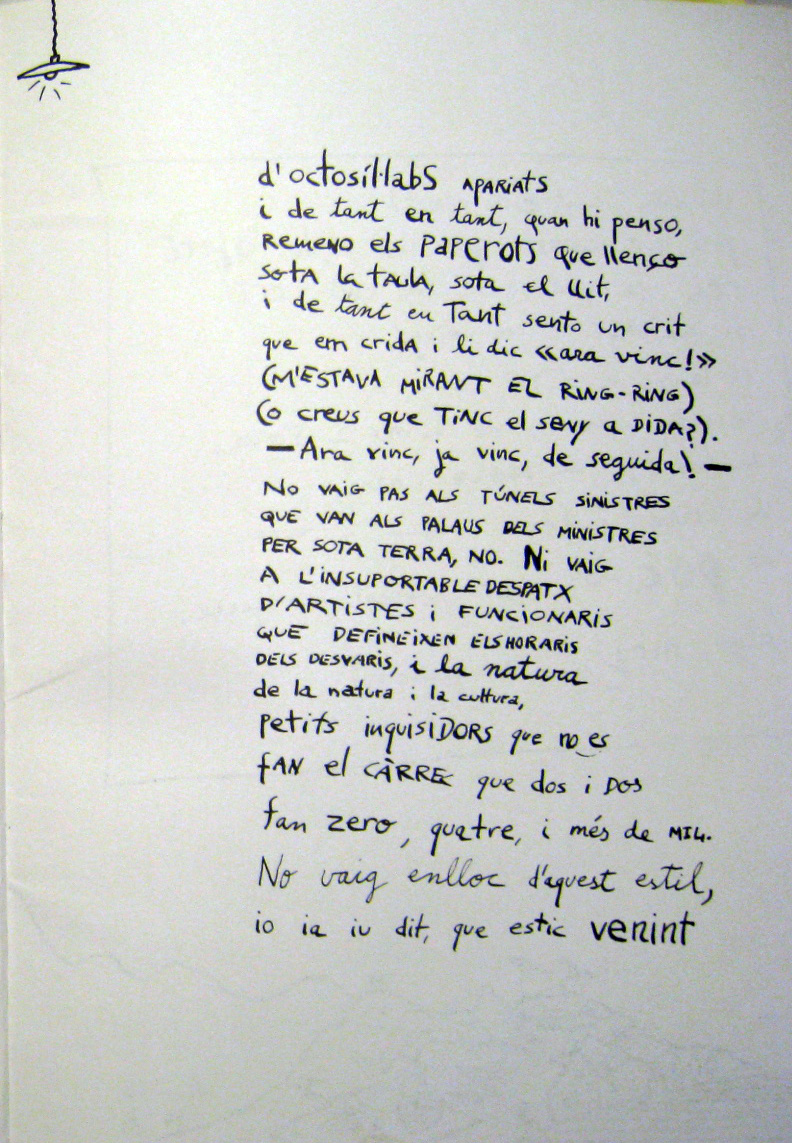 d'octosíl·labS APARiATS
i de tant en tant, quan hi penso,
REMENO els PAPEROTS que llenço
SOTA la TAULA, sota el llit,
i de tant en Tant sento un crit
que em CRIDA i li dic «ara vinc!»
(M'ESTAVA MiRANT EL RiNG-RiNG)
(o creus que TiNC el seny a DiDA?).
—Ara vinc, ja vinc, de seguida!—
NO VAiG PAS ALS TÚNELS SiNiSTRES
QUE VAN ALS PALAUS DELS MiNiSTRES
PER SOTA TERRA, NO. Ni VAiG
A L'iNSUPORTABLE DESPATX
D'ARTiSTES i FUNCiONARiS
QUE DEFiNEiXEN ELS HORARiS
DELS DESVARiS, i la natura
de la natura i la cultura,
petits inquisiDORS que no es
fAN el CÀRREC que dos i DOS
fan zero, quatre, i més de MiL.
No vaig enlloc d'aquest estil,
io ia iu dit, que estic venint